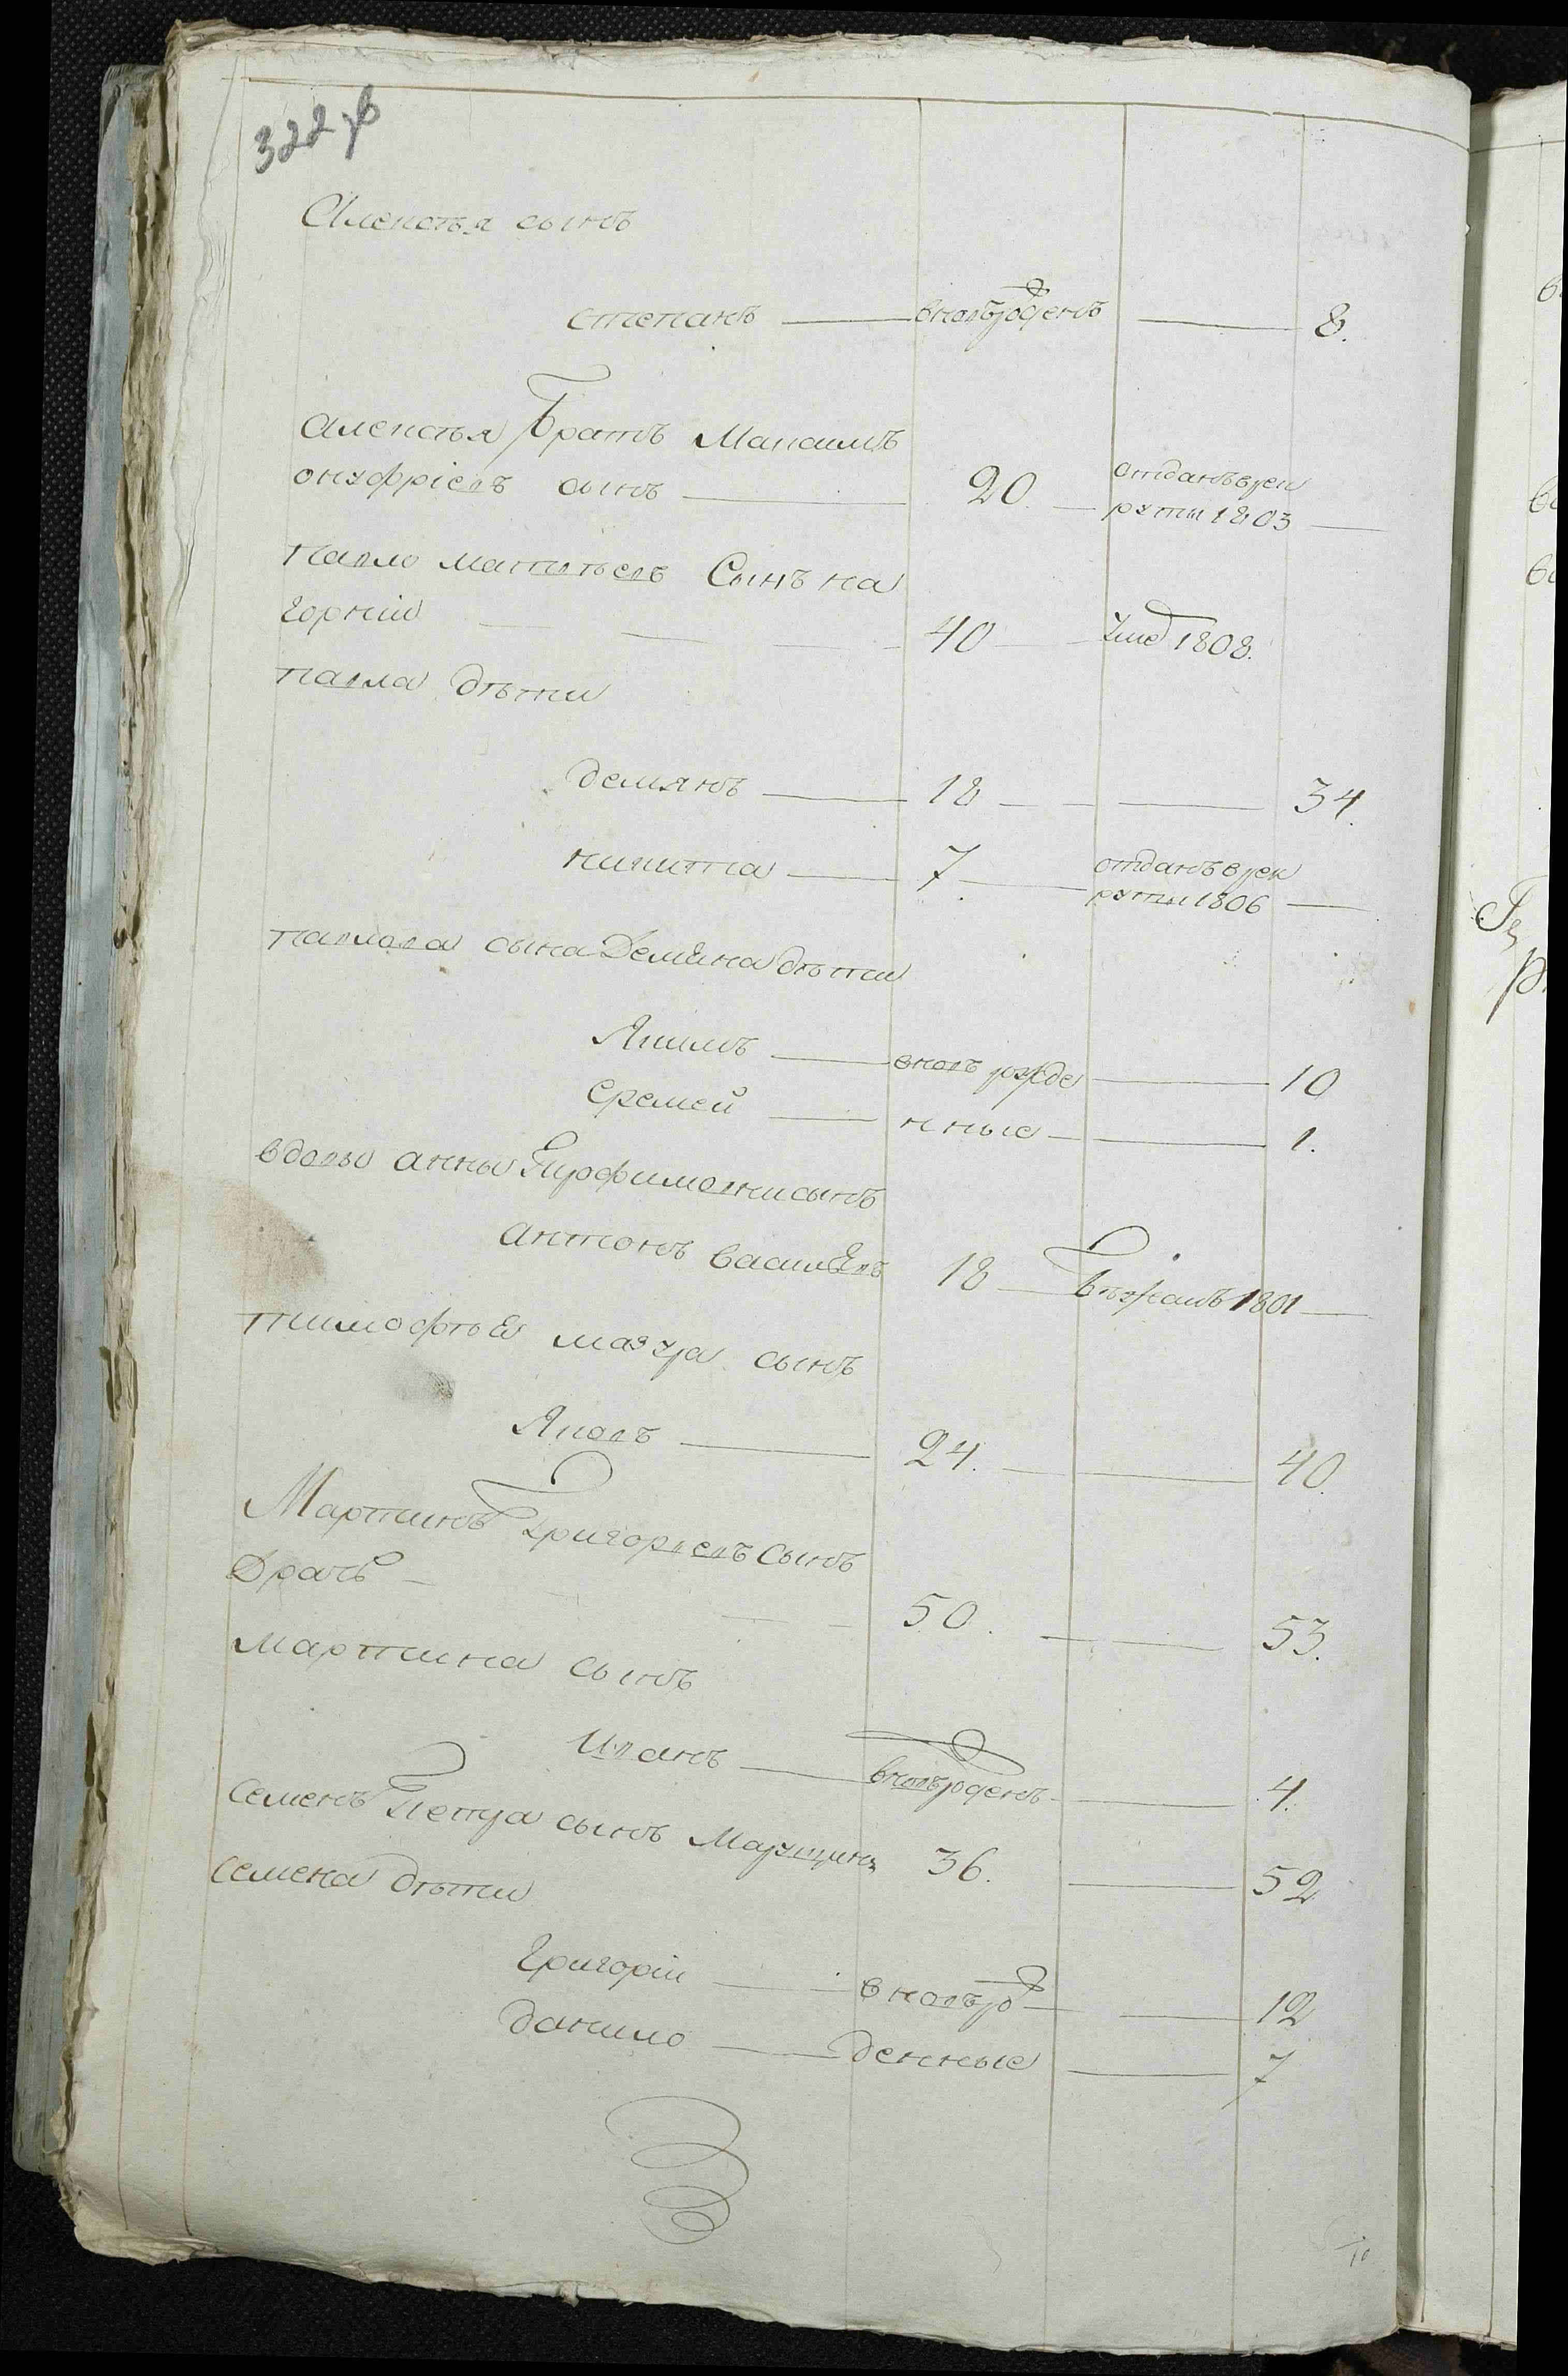 322 об
Алексѣя сынъ
степанъ вновьрожденъ 8.
алексѣя братъ Максимъ
онуфріевъ сынъ 20. отданъ в рек
руты 1803
павло матвѣевъ Сынъ на
горніи 40 умер 1808.
павла дѣти
демянъ 18 34.
никита 7. отданъ в рек
руты 1806
павлова сына Демяна дѣти
Якимъ вновь рожде 10
еремей нные 1.
вдовы анны Трофимовни сынъ
антонъ василевъ 18 бѣжалъ 1801
тимофѣя мазура сынъ
Яковъ 24. 40.
Мартинъ Григорьевъ Сынъ
Драчъ 50. 53.
мартина сынъ
Иванъ вновьрожденъ 4.
семенъ Петра сынъ 36. 52
семена дѣти
Григоріи вновьро 12
данило жденные 7